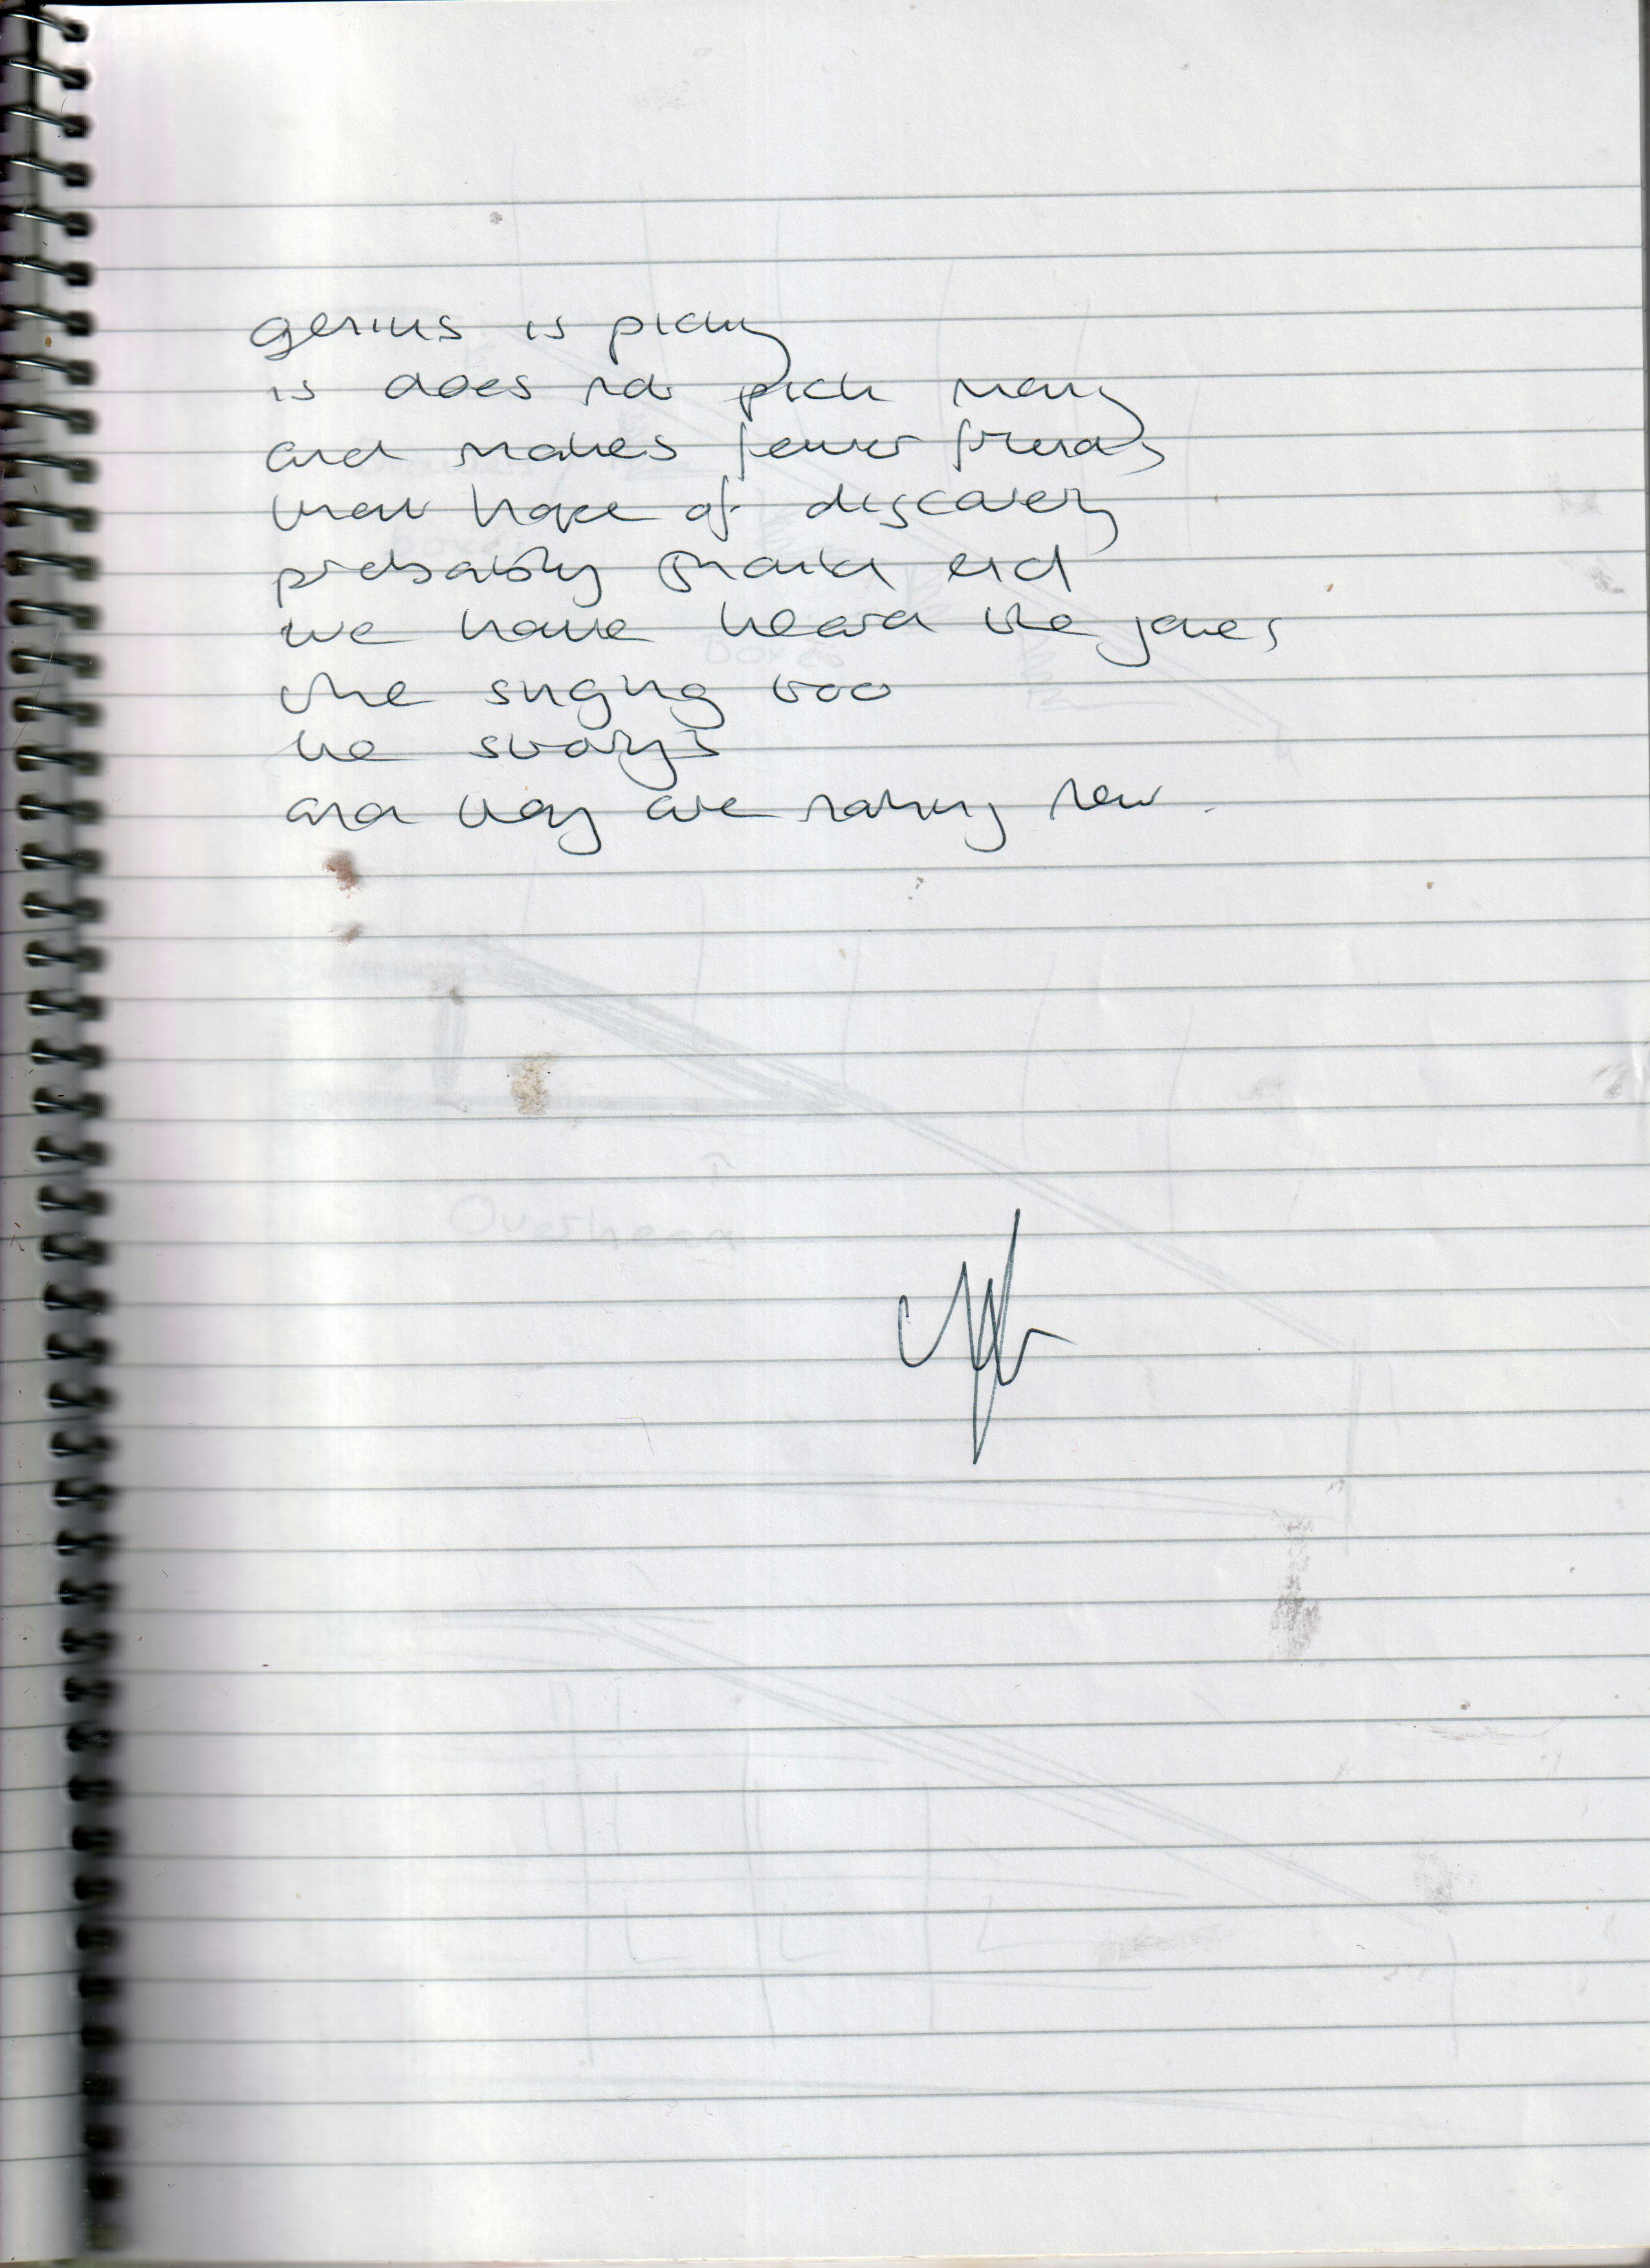 genius is picky
is does not pick many
and makes fewer friends
that hope of discovery
probably should end
we have heard the jokes
the singing too
the storys
and they are nothing new.